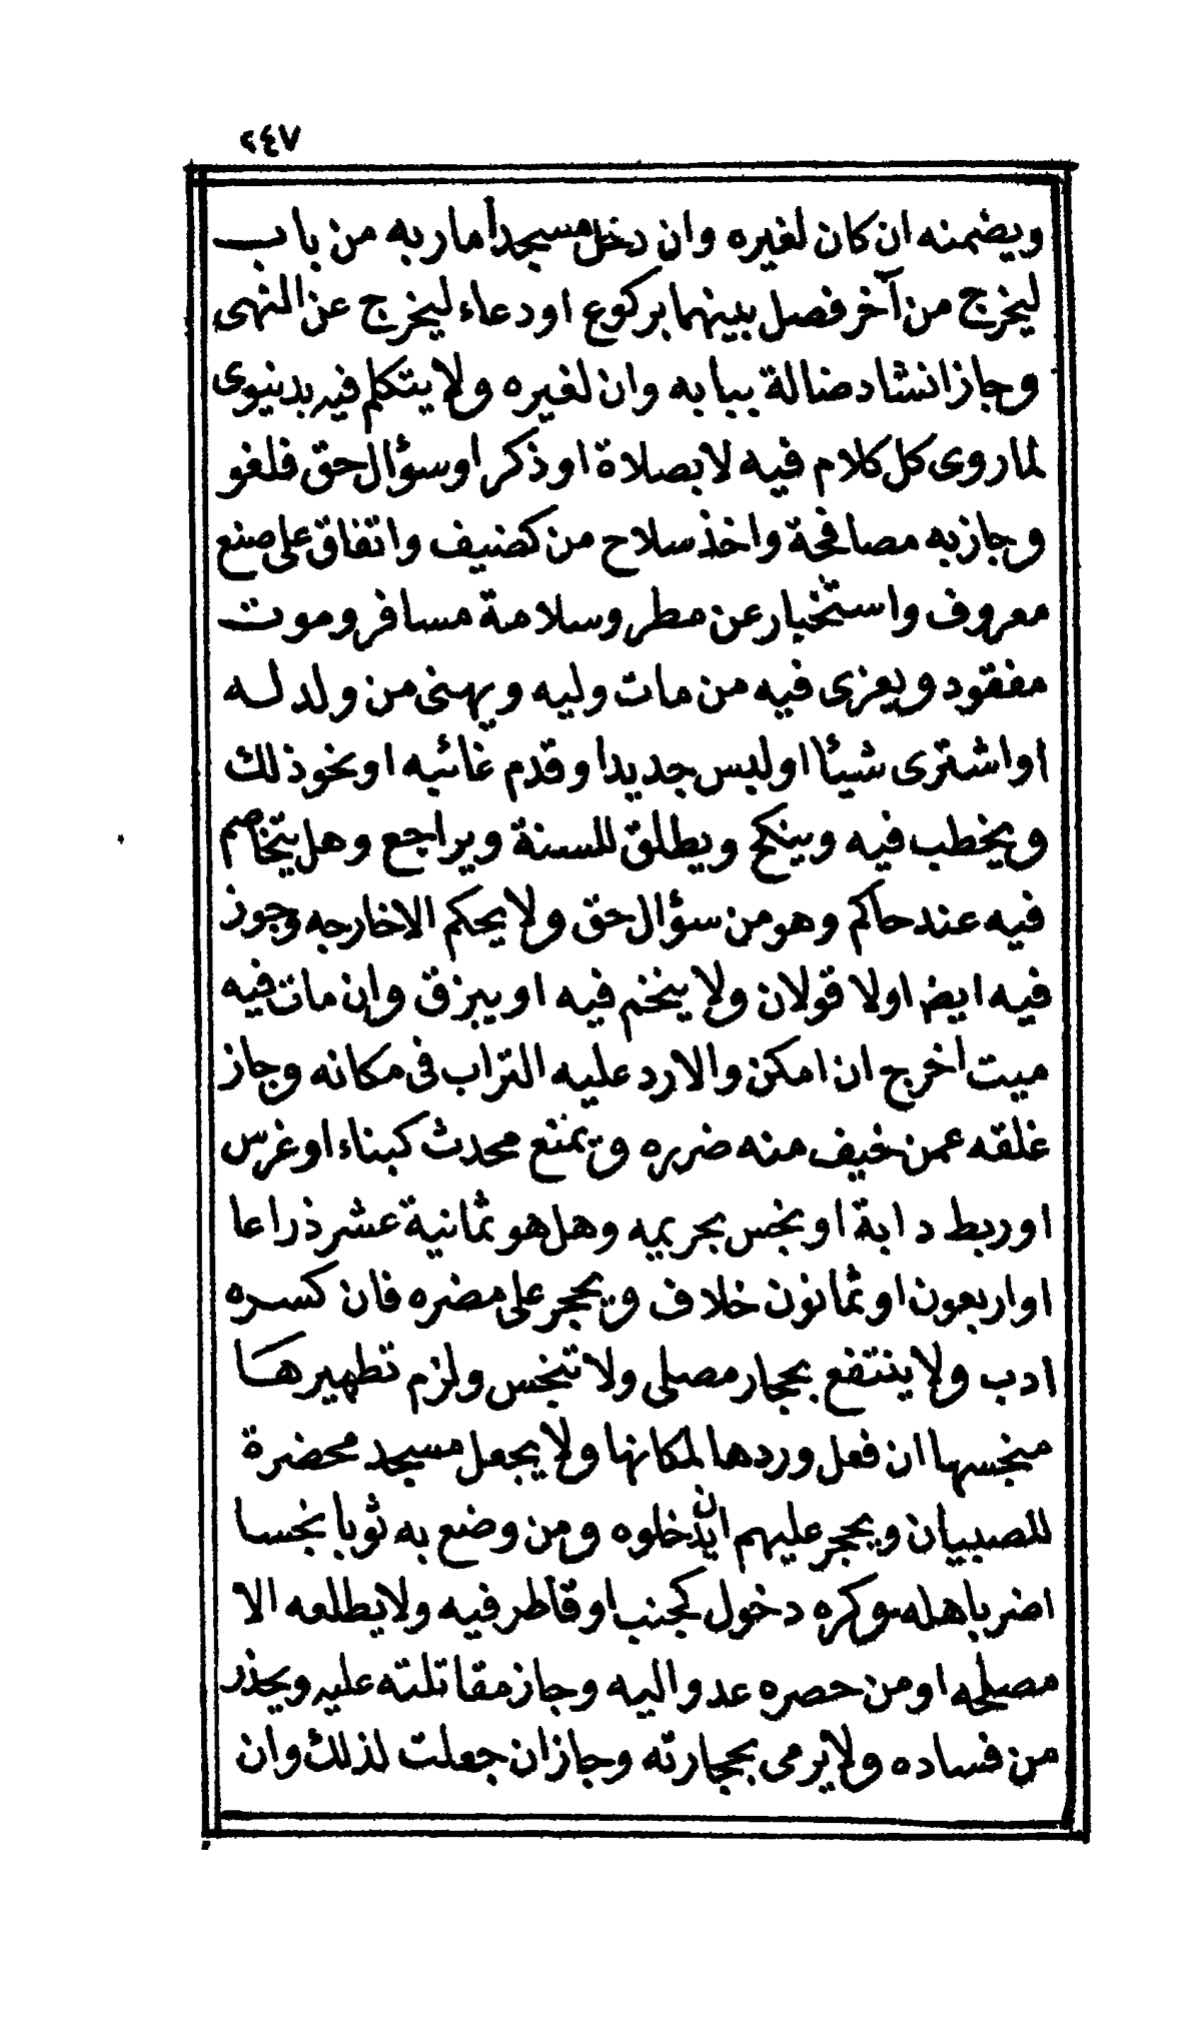 ٢٤٧
ويضمنه ان كان لغيره وان دخل مسجدا مار به من باب
ليخرج من آخر فصل بينهما بركوع او دعاء ليخرج عن النهى
وجاز انشاد ضالة ببابه وان لغيره ولا يتكلم فيه بدنيوى
لما روى كل كلام فيه لا بصلاة او ذكر او سؤال حق فلغو
وجاز به مصافحة واخذ سلاح من كضيف واتفاق على صنع
معروف واستخبار عن مطر وسلامة مسافر وموت
مفقود ويعزى فيه من مات وليه ويهنى من ولد له
او اشترى شيئا او لبس جديدا وقدم غائبه او نحو ذلك
ويخطب فيه وينكح ويطلق للسنة ويراجع وهل يتخاصم
فيه عند حاكم وهو من سؤال حق ولا يحكم الا خارجه وجوز
فيه ايض اولا قولان ولا ينخم فيه او يبزق وان مات فيه
ميت اخرج ان امكن والا رد عليه التراب فى مكانه وجاز
غلقه عمن خيف منه ضرره ويمنع محدث كبناء او غرس
او ربط دابة او نجس بحريمه وهل هو ثمانية عشر ذراعا
او اربعون او ثمانون خلاف ويحجر على مضره فان كسره
ادب ولا ينتفع بحجار مصلى ولا تنجس ولزم تطهيرها
منجسها ان فعل وردها لمكانها ولا يجعل مسجد محضرة
للصبيان ويحجر عليهم ان يدخلوه ومن وضع به ثوبا نجسا
اضر باهله وكره دخول كجنب او قاطر فيه ولا يطلعه الا
مصلحه او من حصره عدو اليه وجاز مقاتلته عليه ويحذر
من فساده ولا يرمى بحجارته وجاز ان جعلت لذلك وان